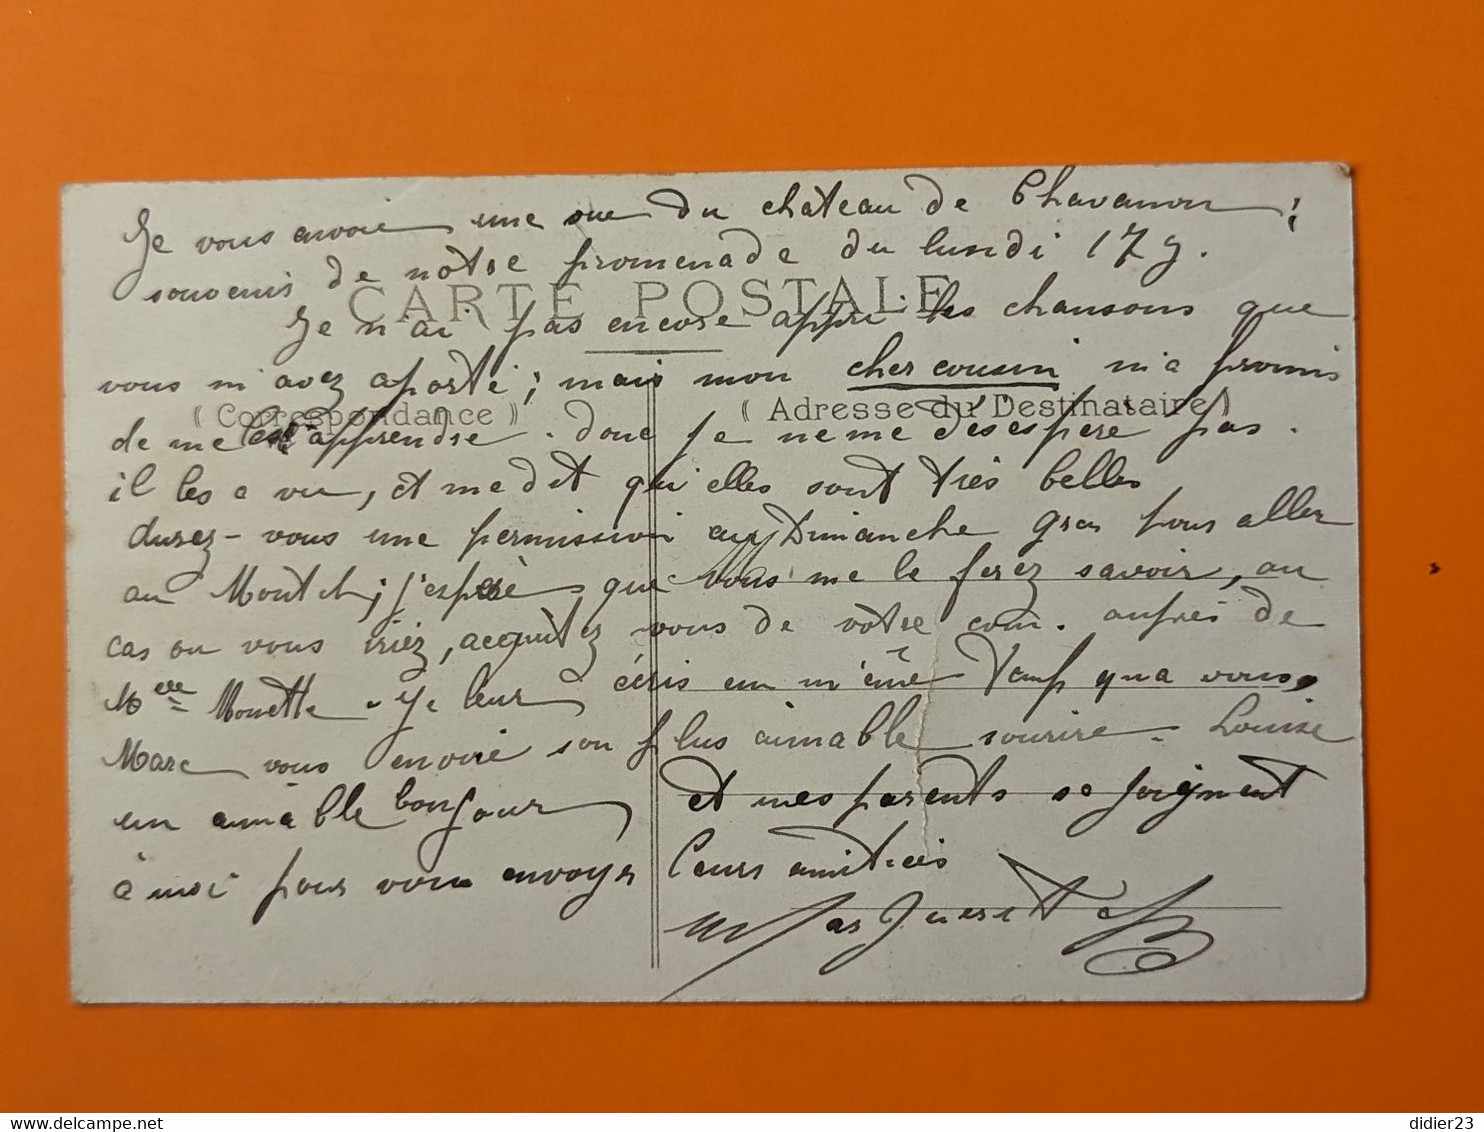 Je vous envoie une vue du chateau de Chavanon ;
souvenir de notre promenade du lundi 17 9.
CARTE POSTALE
Je n'ai pas encore appri les chansons que
vous m'avez aporté ; mais mon cher cousin m'a promis
( Correspondance )
( Adresse du Destinataire )
de me les apprendre. donc je ne me desespère pas.
il les a vu, et me dit qu'elles sont très belles
Aurez-vous une permission au Dimanche gras pour aller
au Montel ; j'espère que vous me le ferez savoir, au
cas ou vous iriez, acquitez vous de votre com. auprès de
Melle Monette. Je leur écris en même Temp qu'a vous,
Marc vous envoie son plus aimable sourire. Louise
un aimable bonjour
et mes parents se joignent
à moi pour vous envoyer
leurs amitiés
didier23